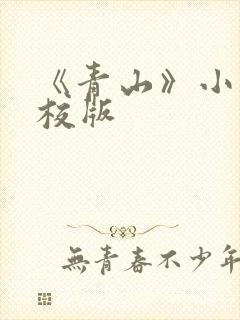 《青山》小
校版
無青春不少年